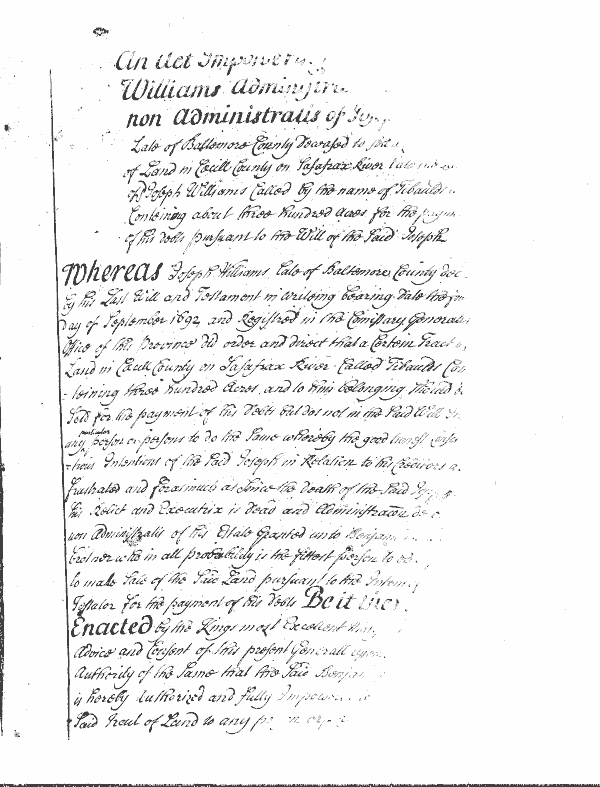 An Act Impowering
Williams Administra
non Administratis of
Late of Baltemore County Deceased to
of Land in Cecill County on Sasafrax River Late
Joseph Williams Called by the name of Tibaulds
Conteining about three hundred acres for the
of his debts pursuant to the Will of the said Joseph
Whereas Joseph Williams Late of Baltemore County
by his Last Will and Testament in writeing bearing date the
day of September 1692 and Registred in the Comissary Generals
Office of this Province did order and direct that a Certein Tract
Land in Cecill County on Sasafrax River Called Tibaulds Con
-teining three hundred Acres, and to him belonging should be
Sold for the payment of his Debts but does not in the said Will
any particular person or persons to do the same whereby the good
-tious Intentions of the said Joseph in Relation to his Creditors
frustrated and forasmuch as since the death of the said
his Relict and Executrix is Dead and Administracon de
non Administratis of his Estate Granted unto Benjam
brother who in all probability is the fittest person to
to make Sale of the said Land pursuant to the Intent
Testator for the payment of his debts Be it
Enacted by the Kings most Excellent
Advice and Consent of this present Generall
Authority of the same that the said Benja
is hereby Authorized and fully Impowered
said tract of Land to any